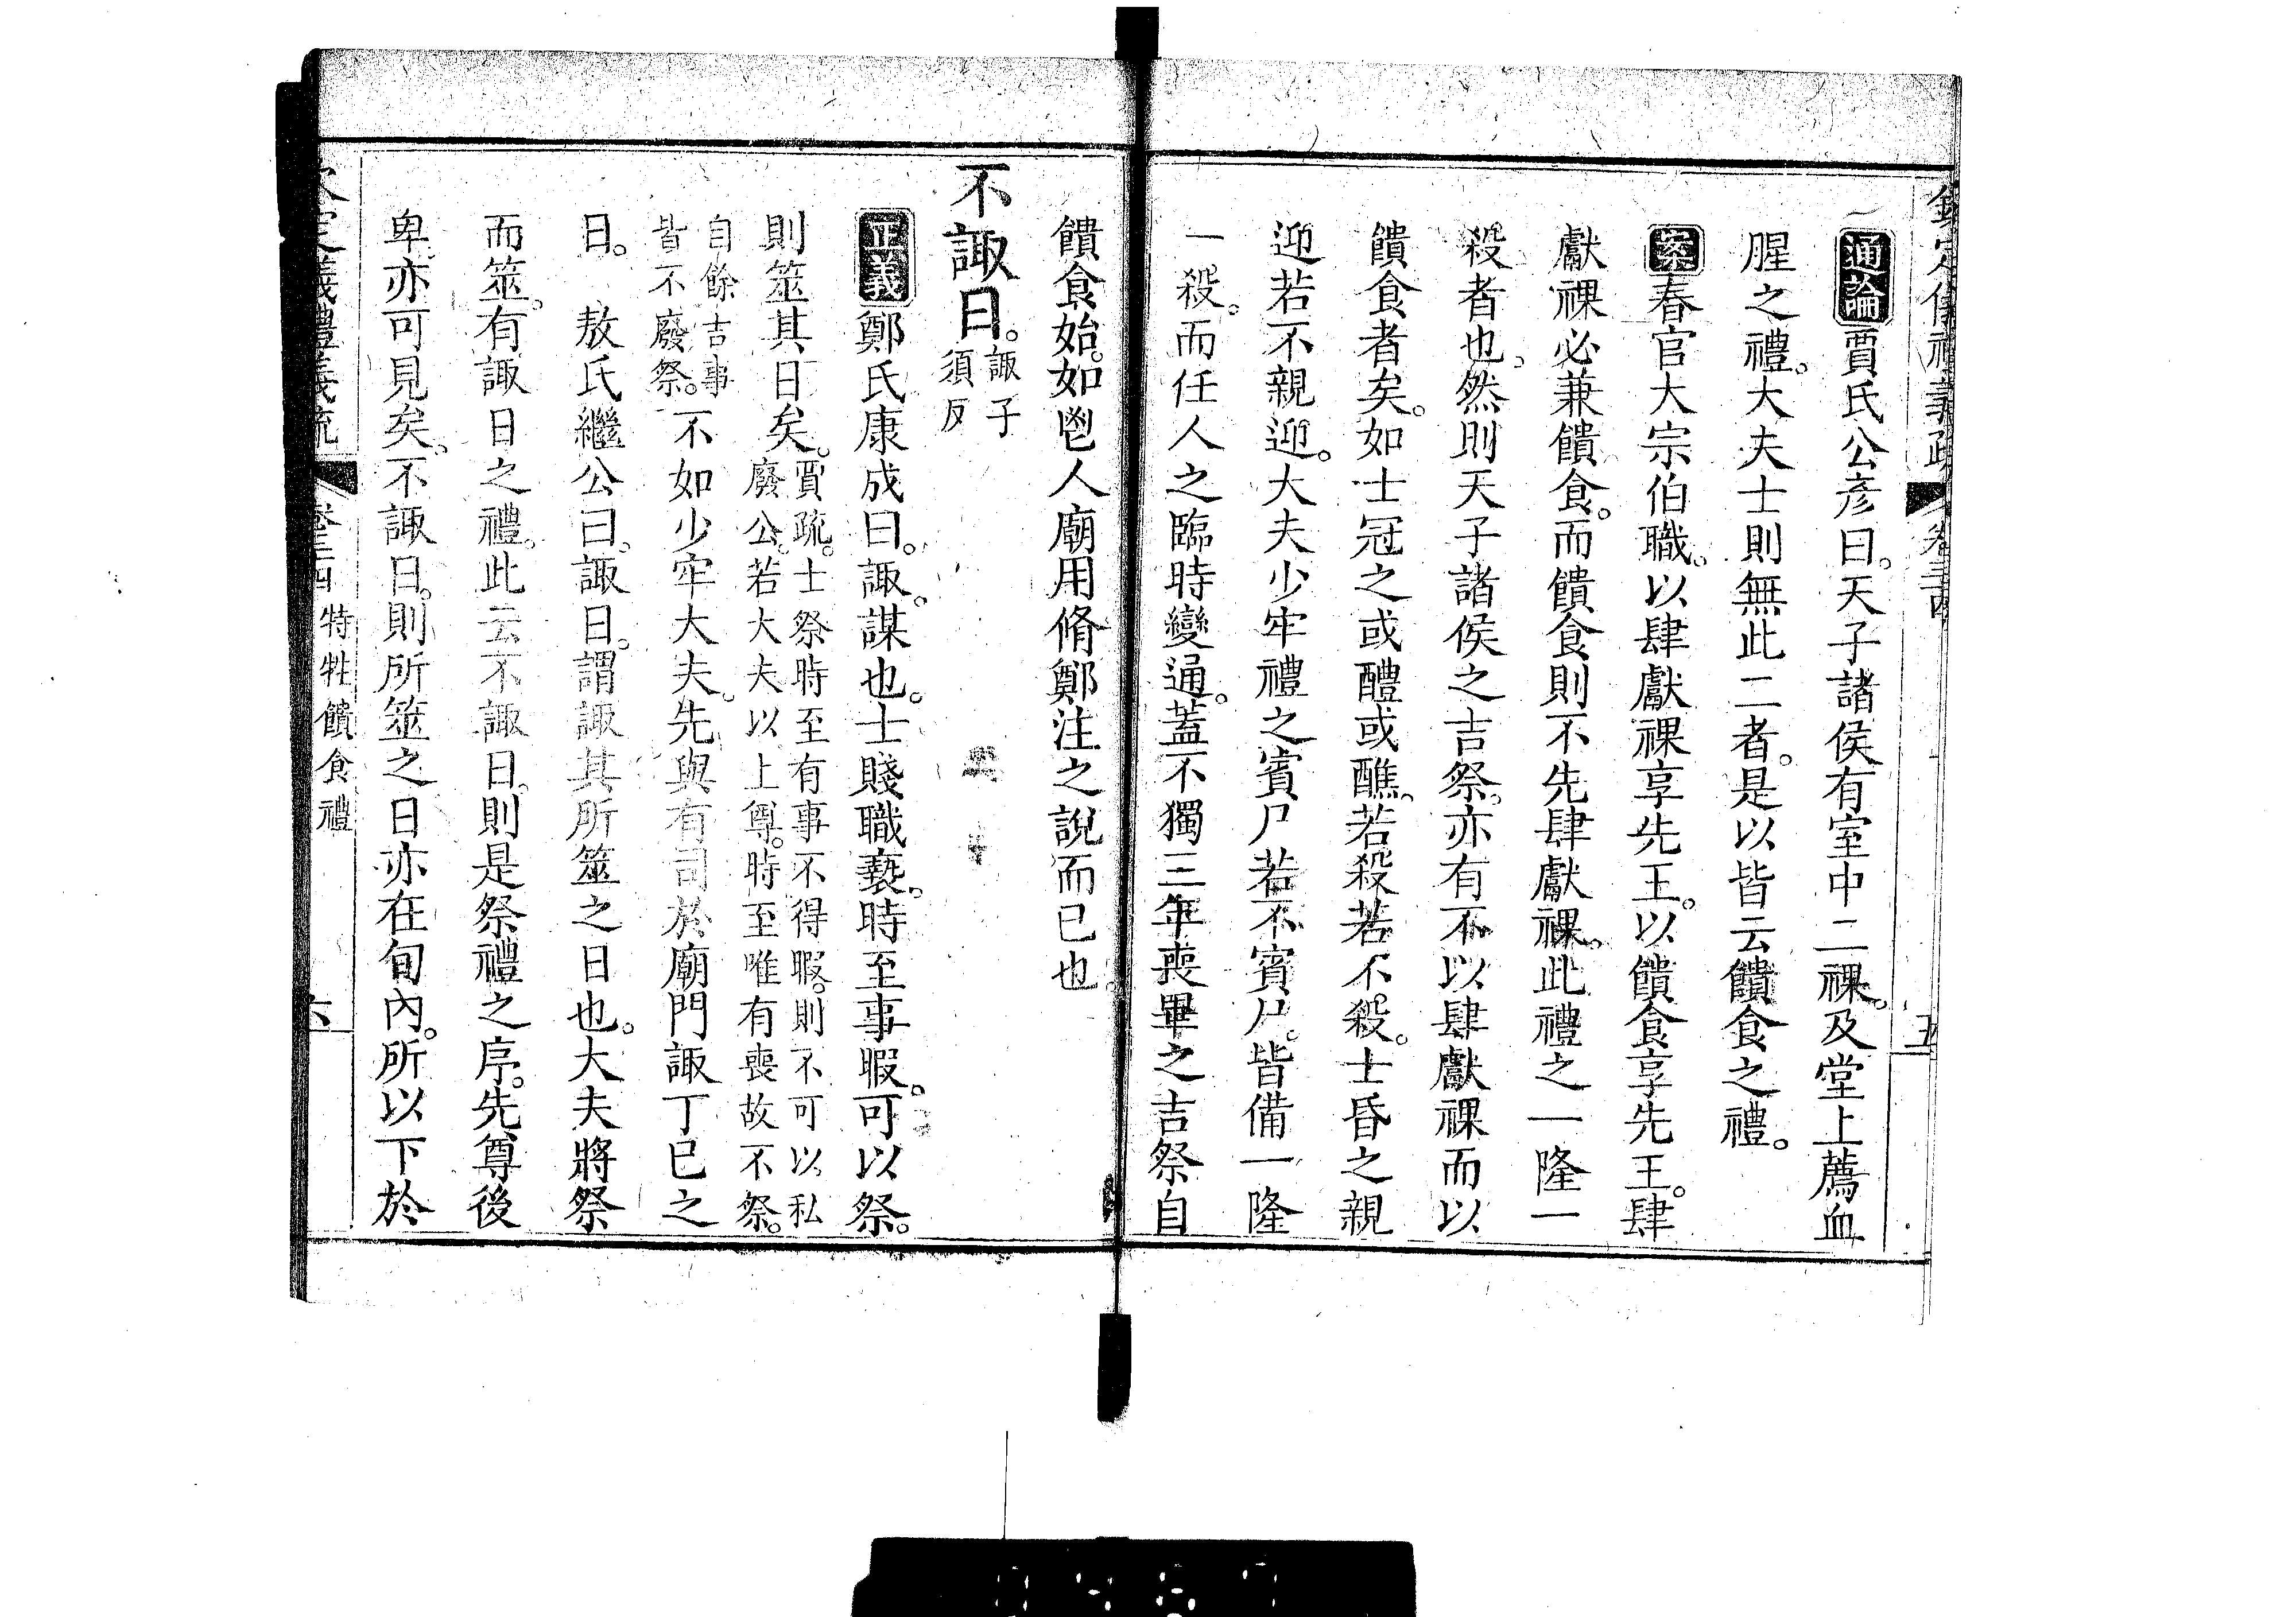 欽定儀禮義疏 卷三十四 五
通論賈氏公彥曰。天子諸侯有室中二祼。及堂上薦血
腥之禮。大夫士則無此二者。是以皆云饋食之禮。
案春官大宗伯職。以肆獻祼享先王。以饋食享先王。肆
獻祼必兼饋食。而饋食則不先肆獻祼。此禮之一隆一
殺者也。然則天子諸侯之吉祭。亦有不以肆獻祼而以
饋食者矣。如士冠之或醴或醮。若殺若不殺。士昏之親
迎若不親迎。大夫少牢禮之賓尸若不賓尸。皆備一隆
一殺。而任人之臨時變通。蓋不獨三年喪畢之吉祭自
饋食始。如鬯人廟用脩鄭注之說而已也。
不諏日。諏子須反
正義鄭氏康成曰。諏。謀也。士賤職褻。時至事暇。可以祭。
則筮其日矣。賈疏。士祭時至有事不得暇。則不可以私廢公。若大夫以上尊。時至唯有喪故不祭。
自餘吉事皆不廢祭。不如少牢大夫。先與有司於廟門諏丁巳之
日。 敖氏繼公曰。諏日。謂諏其所筮之日也。大夫將祭
而筮。有諏日之禮。此云不諏日。則是祭禮之序。先尊後
卑。亦可見矣。不諏日。則所筮之日亦在旬內。所以下於
欽定儀禮義疏 卷三十四 特牲饋食禮 六